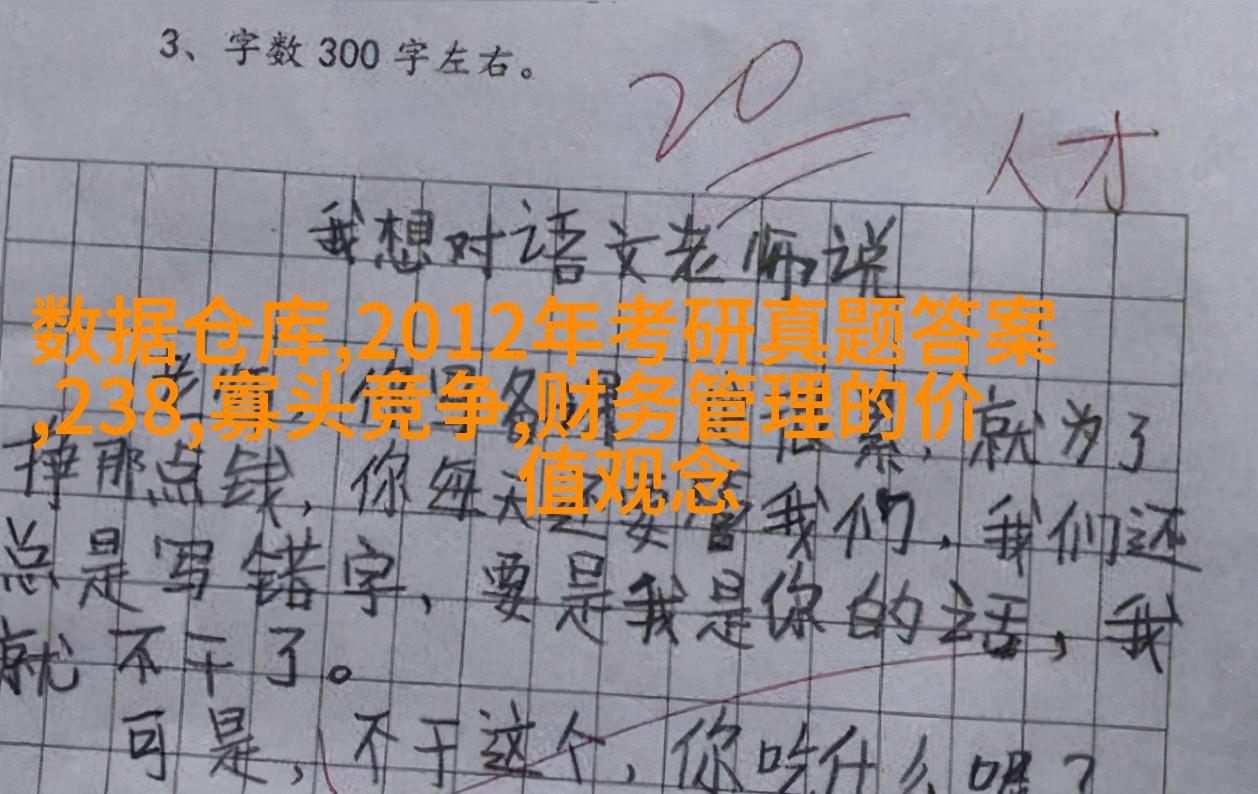 3、字数 300 字左右。
20
人才
我想对语文老师说
数据仓库,2012年考研真题答案
,238,寡头竞争,财务管理的价
值观念
就为了
挣那点钱，你每天还要管我们，我们还
总是写错字，要是我是你的话，我
就不干了。
可是，不干这个，你吃什么呢？